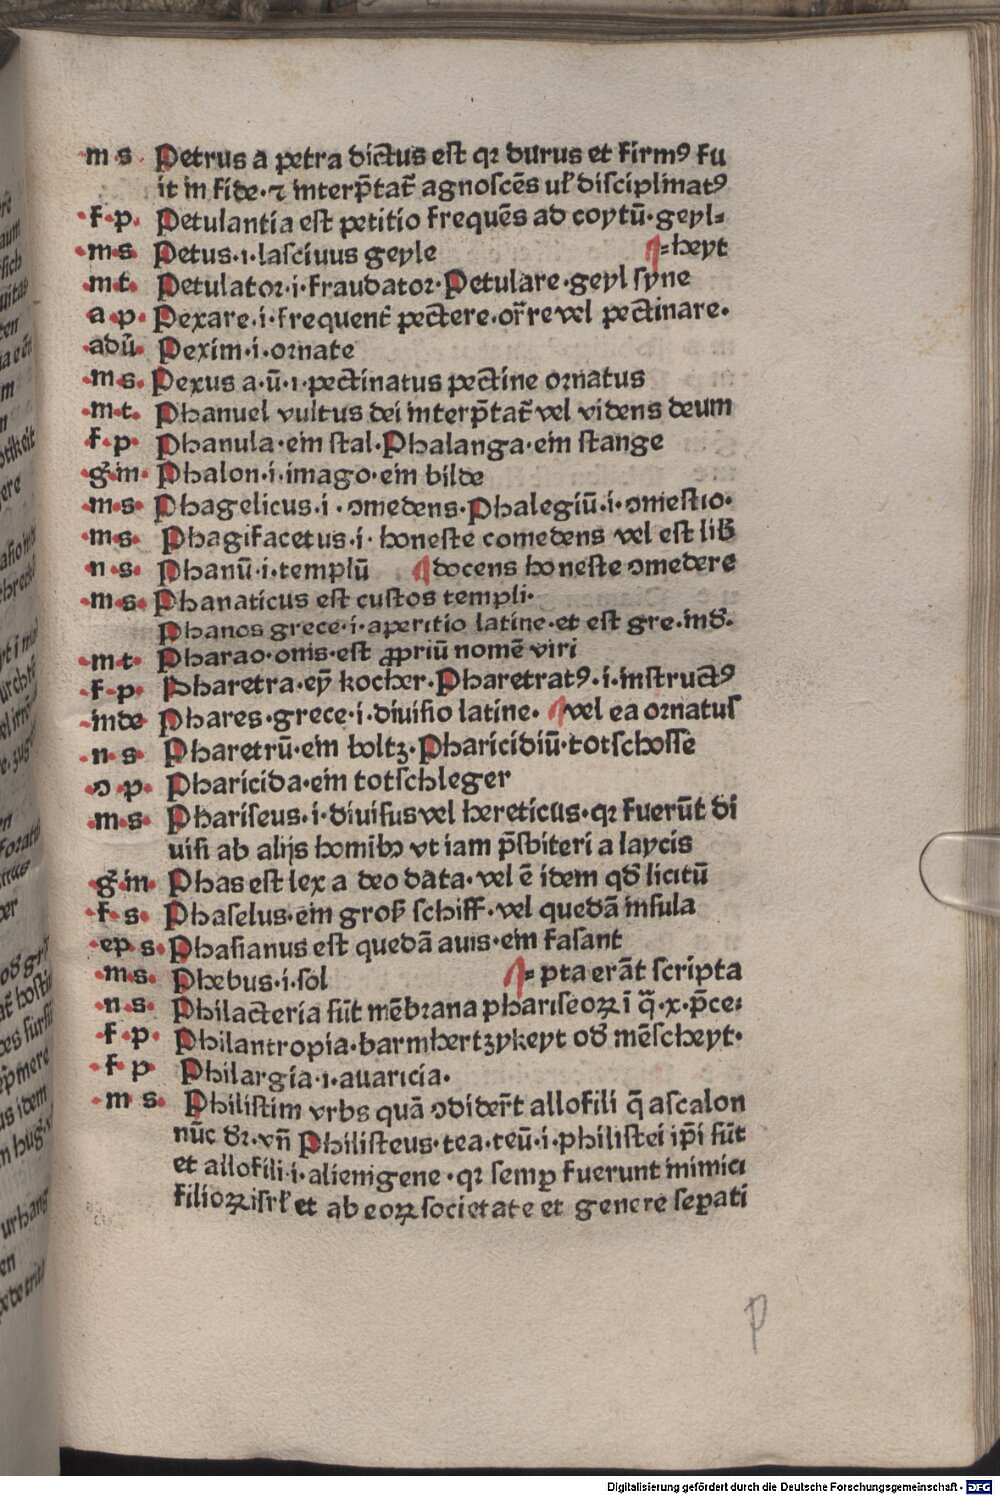 m s Petrus a petra dictus est qꝛ durus et firmꝰ fu
it in fide·⁊ interp̄tat̄ agnoscēs ul̵ disciplinatꝰ
·f·p· Petulantia est petitio frequēs ad coytū·geyl⸗
·m·s· Petus·i·lasciuus geyle ⸗heyt
·m·t· Petulator·i·fraudator·Petulare·geyl syne
·a·p· Pexare·i·frequent̄ pectere·or̄re vel pectinare·
·adū· Pexim·i·ornate
·m·s· Pexus a·ū·i·pectinatus pectine ornatus
·m·t· Phanuel vultus dei interp̄tat̄ vel videns deum
·f·p· Phanula·ein stal·Phalanga·ein stange
·ḡ·in· Phalon·i·imago·ein bilde
·m·s· Phagelicus·i·ꝯmedens·Phalegiū·i·ꝯmestio·
·m·s· Phagifacetus·i·honeste comedens vel est lib̄
·n·s· Phanū·i·templū docens honeste ꝯmedere
·m·s· Phanaticus est custos templi·
Phanos grece·i·aperitio latine·et est gre·ind̄·
·m·t· Pharao·onis·est ꝓpriū nomē viri
·f·p· Pharetra·eȳ kocher·Pharetratꝰ·i·instructꝰ
·inde Phares·grece·i·diuisio latine· vel ea ornatus
·n·s· Pharetrū·ein holtz·Pharicidiū·totschosse
·ꝯ·p· Pharicida·ein totschleger
·m·s· Phariseus·i·diuisus vel hereticus·qꝛ fuerūt di
uisi ab alijs homibꝫ vt iam p̄sbiteri a laycis
ḡ·in· Phas est lex a deo data·vel ē idem qd̄ licitū
·f·s· Phaselus·ein groß schiff·vel quedā insula
·ep s· Phasianus est quedā auis·ein fasant
·m·s· Phebus·i·sol ⸗pta erāt scripta
·n·s· Philacteria sūt mēbrana phariseoꝝ ī q̄·x·p̄ce⸗
·f·p· Philantropia·barmhertzykeyt od̄ mēscheyt·
·f·p Philargia·i·auaricia·
·m s· Philistim vrbs quā ꝯdider̄t allofili q̄ ascalon
nūc dꝛ·vn̄ Philisteus·tea·teū·i·philistei ip̄i sūt
et allofili·i·alienigene·qꝛ semꝑ fuerunt inimici
filioꝝ isrl̵ et ab eoꝝ societate et genere seꝑati
p
Digitalisierung gefördert durch die Deutsche Forschungsgemeinschaft · DFG